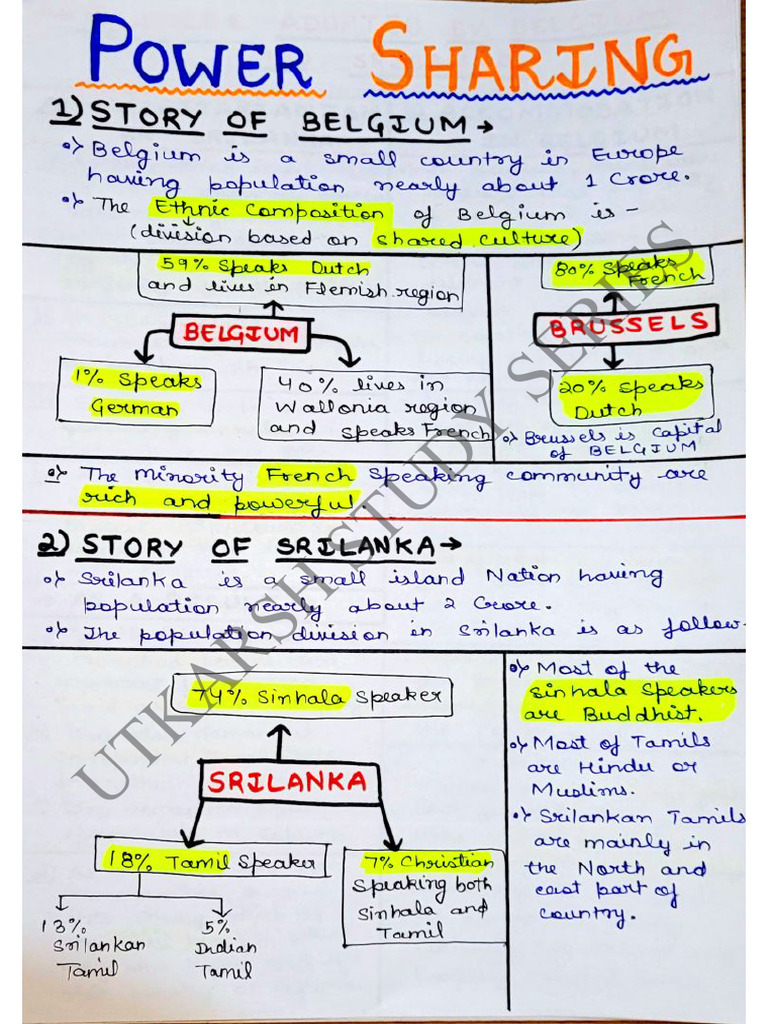 POWER SHARING
1) STORY OF BELGIUM →
Belgium is a small country in Europe
having population nearly about 1 Crore.
The Ethnic Composition of Belgium is -
(division based on shared culture)
59% Speaks Dutch
and lives in Flemish region
BELGIUM
1% Speaks
German
40% lives in
Wallonia region
and speaks French
80% Speaks
French
BRUSSELS
20% Speaks
Dutch
Brussels is Capital
of BELGIUM
The Minority French Speaking community are
rich and powerful.
2) STORY OF SRILANKA →
Srilanka is a small island Nation having
population nearly about 2 Crore.
The population division in Srilanka is as follow-
74% Sinhala Speaker
SRILANKA
18% Tamil Speaker
13%
Srilankan
Tamil
5%
Indian
Tamil
7% Christian
Speaking both
Sinhala and
Tamil
Most of the
Sinhala Speakers
are Buddhist.
Most of Tamils
are Hindu or
Muslims.
Srilankan Tamils
are mainly in
the North and
east part of
country.
UTKARSH STUDY SERIES